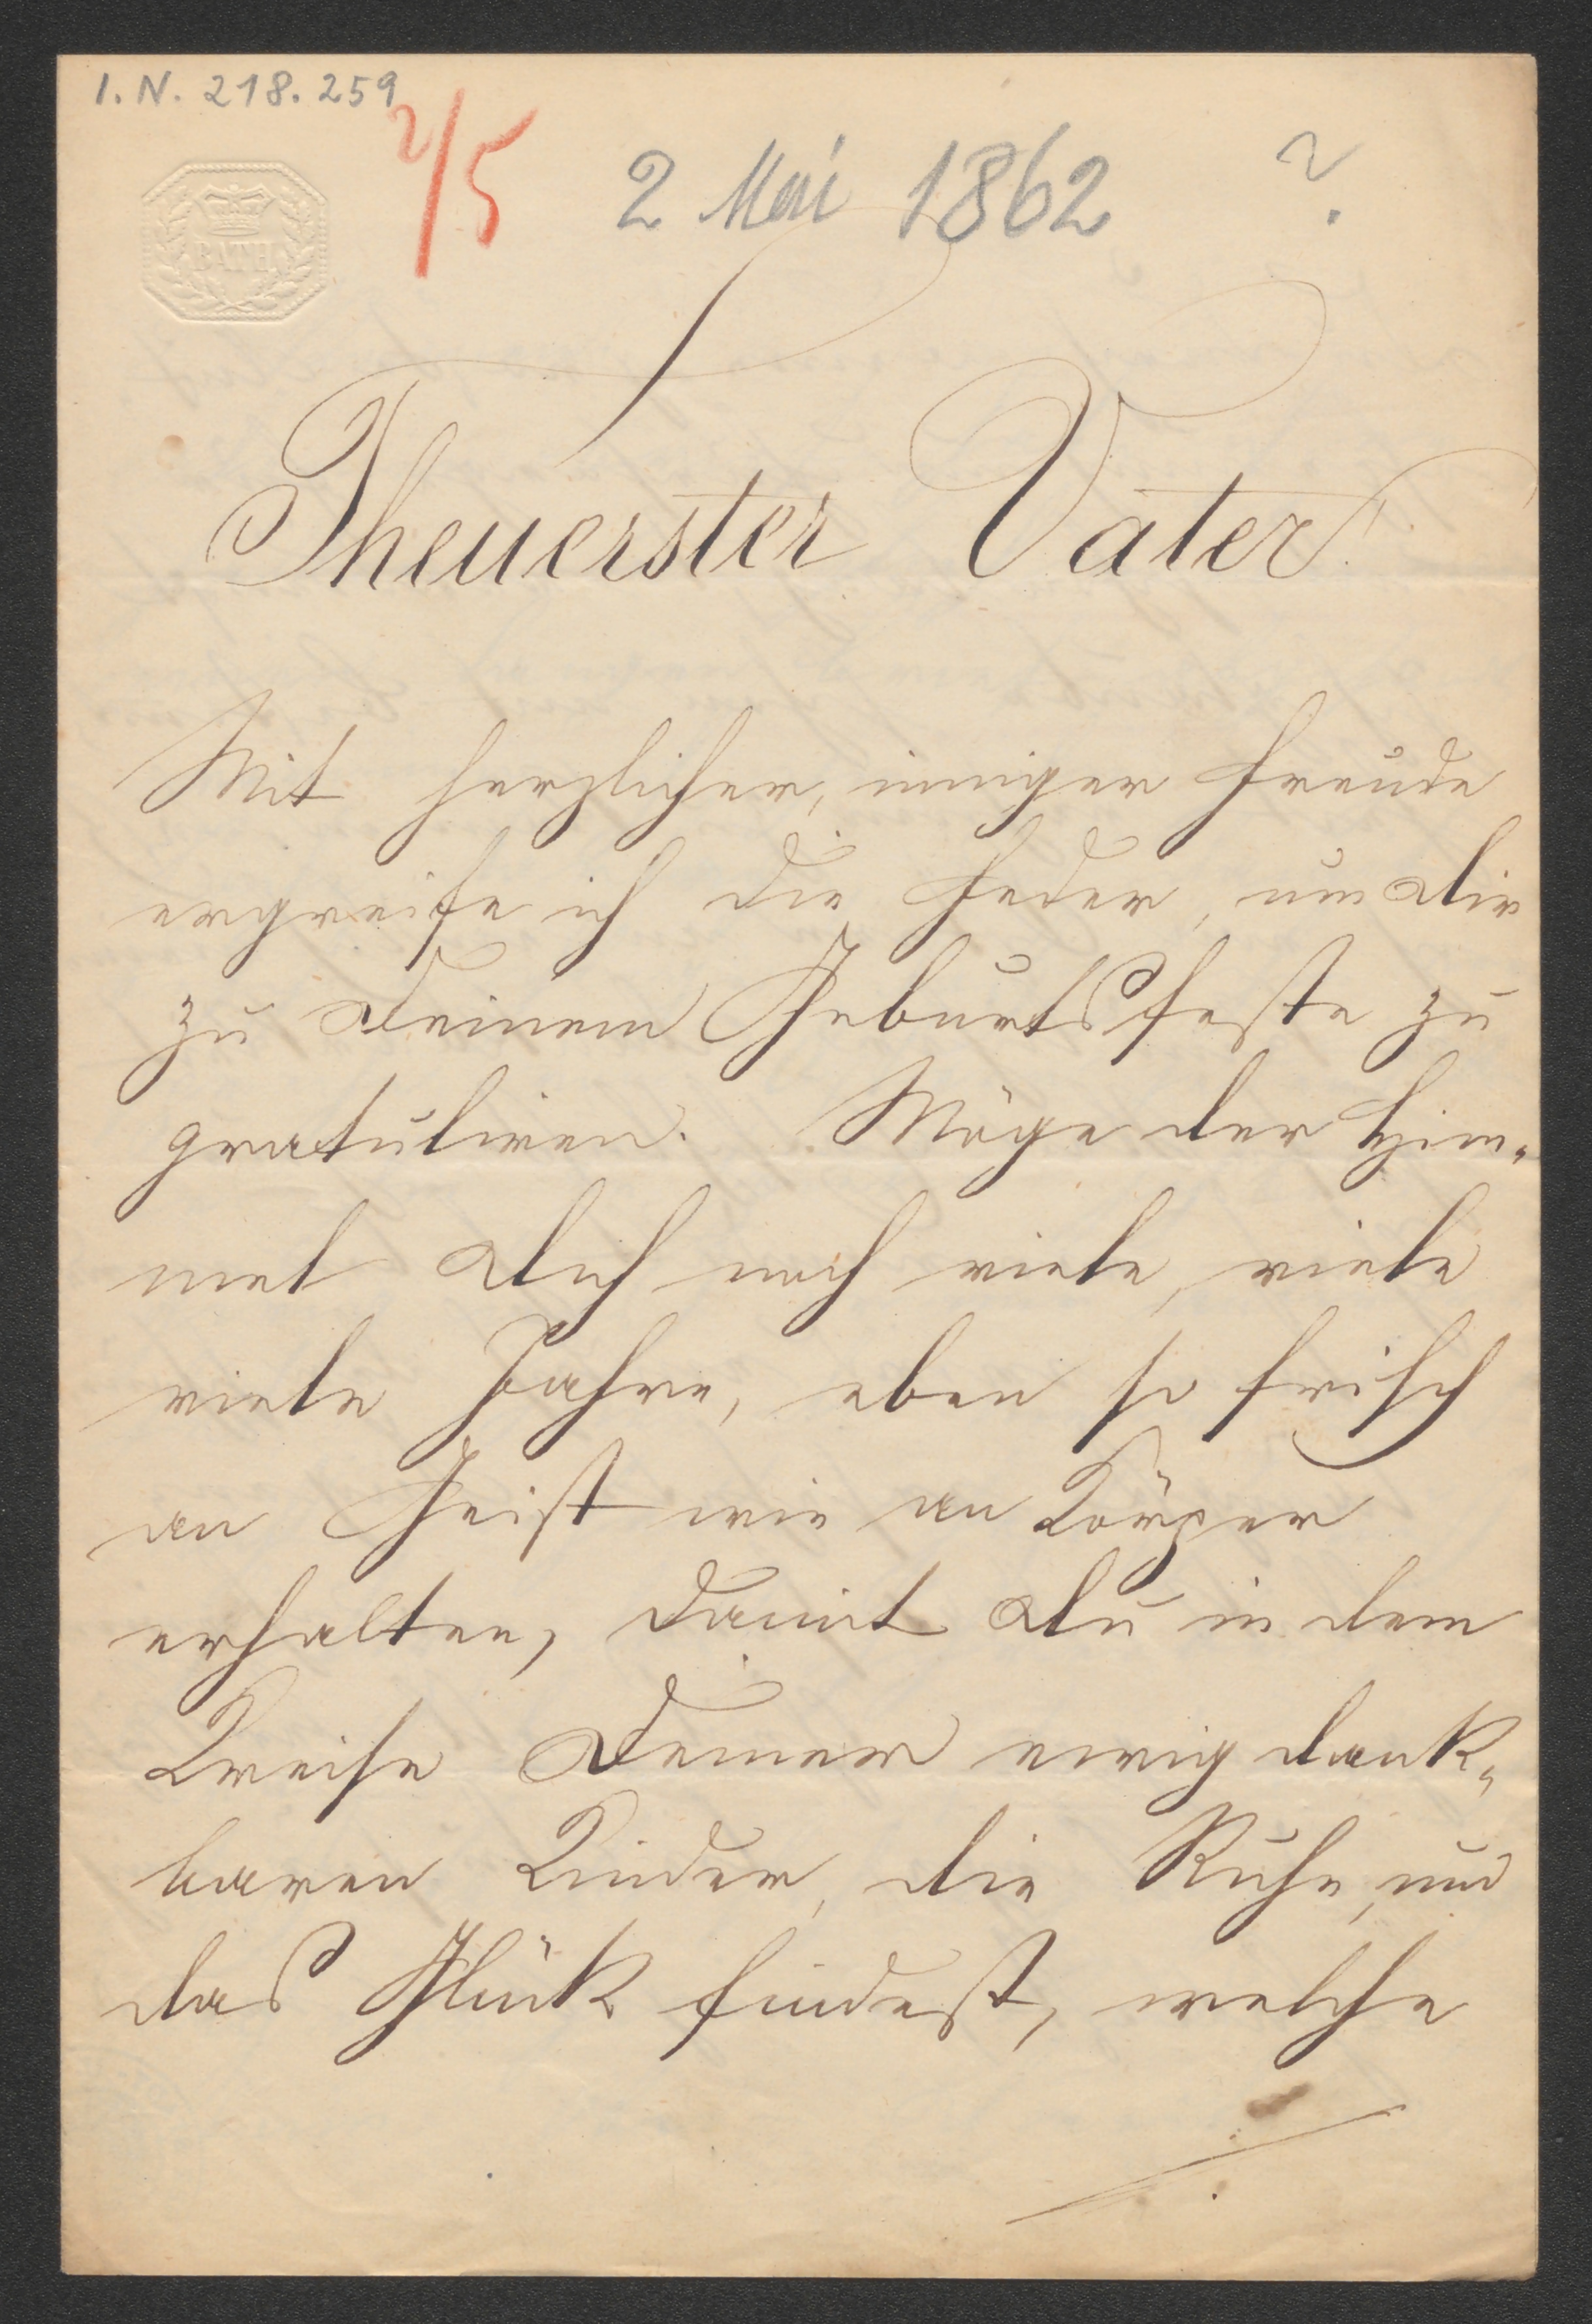 I. N. 218. 259
2/5 2 Mai 1862 ?
BATH
Theuerster Vater!
Mit herzlicher, inniger Freude
ergreife ich die Feder, um Dir
zu Deinem Geburtsfeste zu
gratuliren. Möge der Him-
mel Dich noch viele, viele
viele Jahre, eben so frisch
an Geist wie an Körper
erhalten, damit Du in dem
Kreise Deiner ewig dank-
baren Kinder, die Ruhe, und
das Glück findest, welche